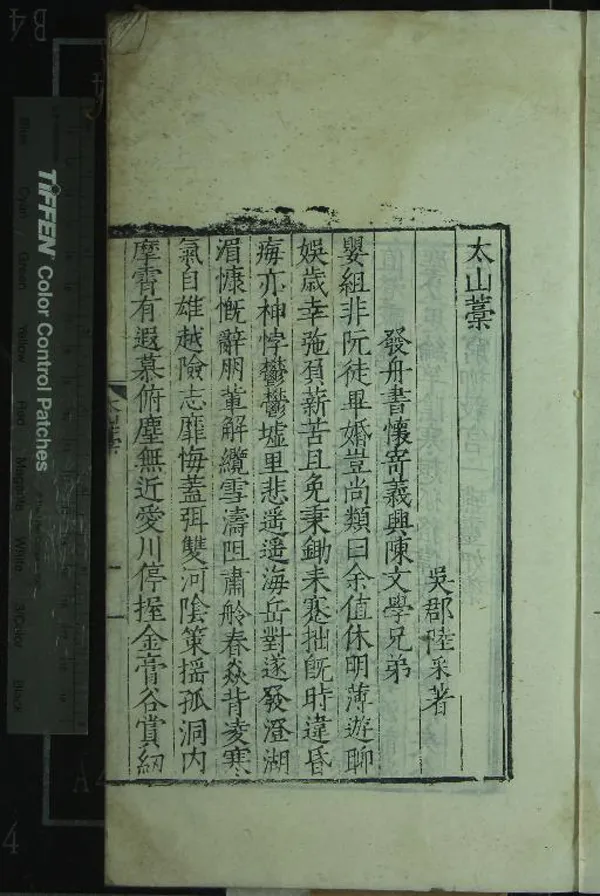 太山藁
吳郡陸采著
發舟書懷寄義興陳文學兄弟
嬰組非阮徒畢婚豈尚類曰余值休明薄遊聊
娛歲幸弛負薪苦且免秉鋤耒蹇拙旣時違昏
痗亦神悖鬱鬱墟里悲遥遥海岳對遂發澄湖
湄慷慨辭朋軰解纜雪濤阻肅舲春焱背凌寒
氣自雄越險志靡悔蓋弭雙河陰策揺孤洞内
摩霄有遐慕俯塵無近愛川停握金膏谷賞紉
TIFFEN Color Control Patches
Blue
Cyan
Green
Yellow
Red
Magenta
White
3/Color
Black
B4
4